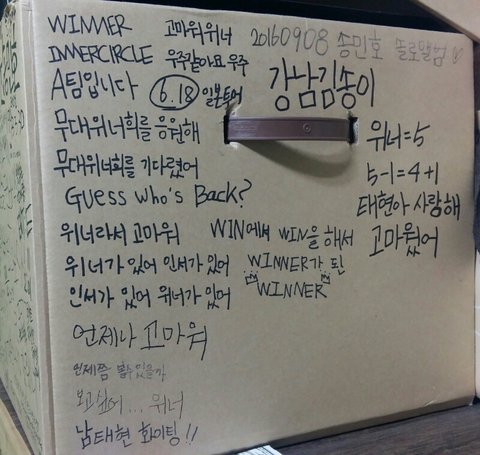 WINNER 고마워 위너
INNERCIRCLE 우주같아요 우주
A팀입니다 6.18 일본투어
무대위너희를 응원해
무대위너희를 기다렸어
Guess who's Back?
위너라서 고마워
WIN에서 WIN을 해서
위너가 있어 인서가 있어
WINNER가 된
인서가 있어 위너가 있어
WINNER
언제나 고마워
언제쯤 볼수있을까
보고싶어... 위너
남태현 화이팅!!
20160908 송민호 솔로앨범♡
강남김송이
위너=5
5-1=4+1
태현아 사랑해
고마웠어